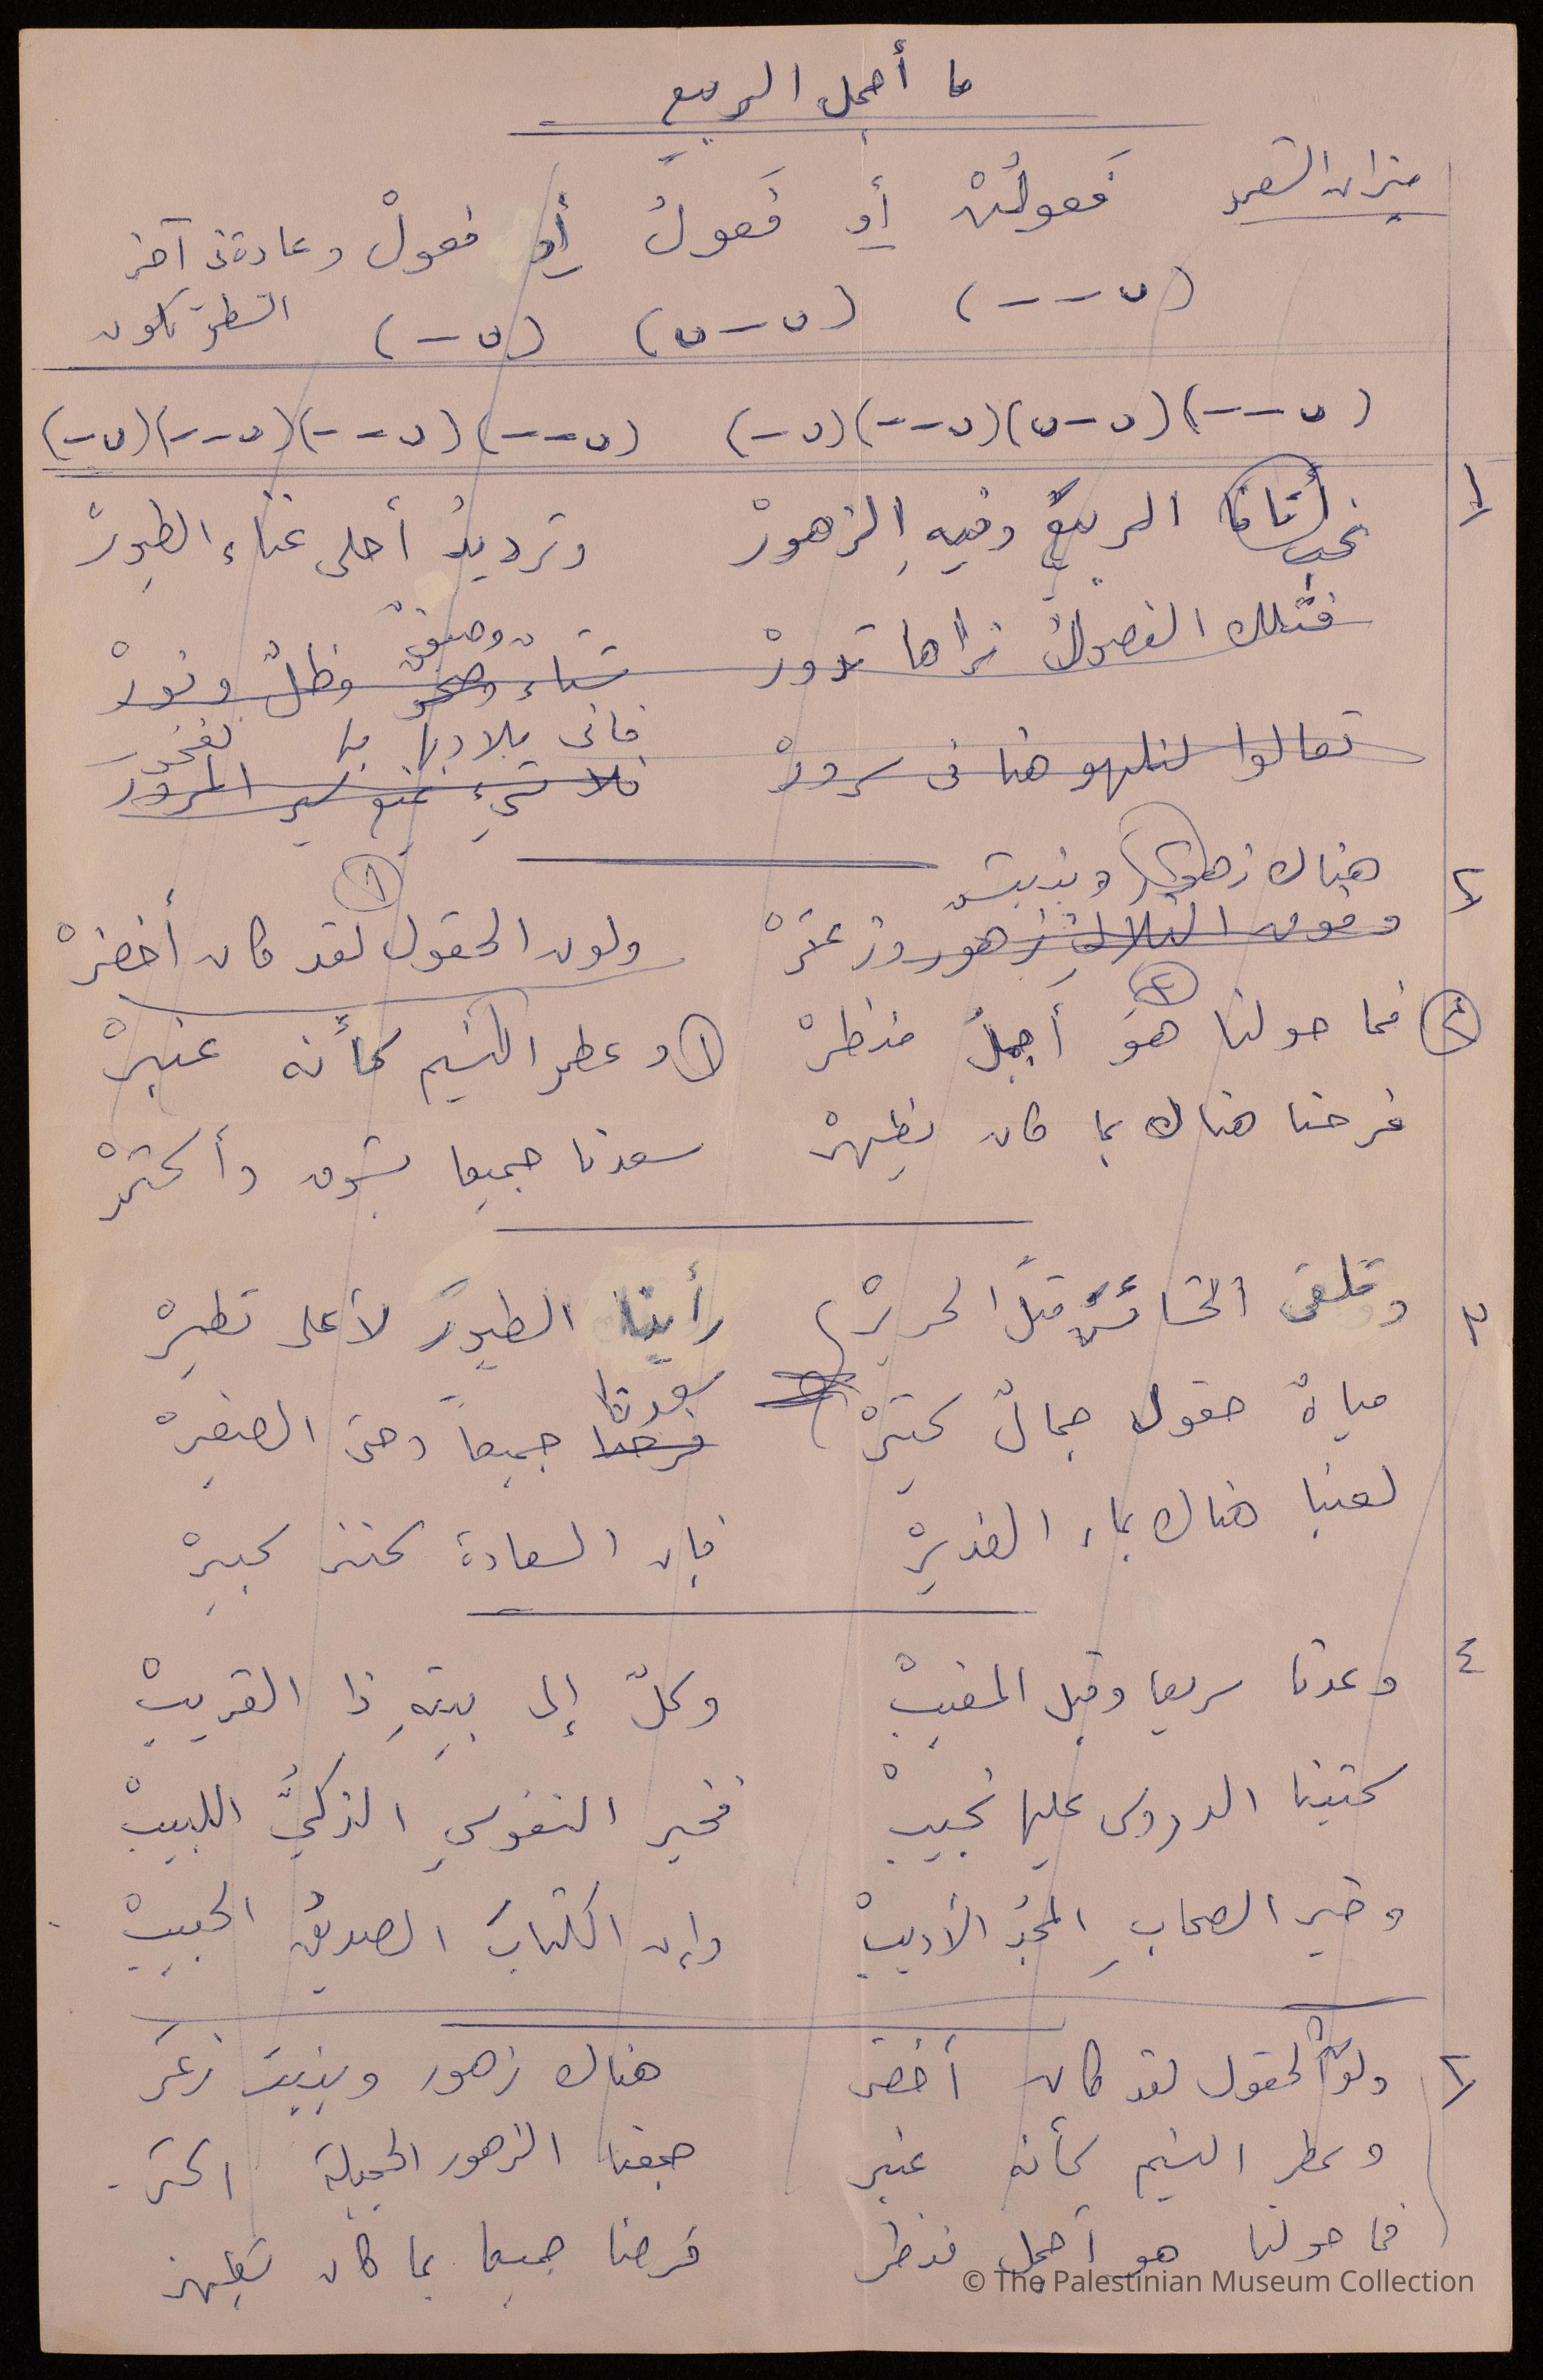 ما أجمل الربيع
ميزان الشعر فَعولُنْ أو فَعولُ أو فعولْ وعادة في آخر
(ں--) (ں-ں) (ں-) الشطرة تكون
(ں--)(ں-ں)(ں--)(ں-) (ں--)(ں--)(ں--)(ں-)
١ أتانا الربيعُ وفيهِ الزهورْ وترديدُ أحلى غناء الطيورْ
نحب
وصيف
فتلك الفصولُ نراها تدورْ شتاء وصحو وظلٌ ونورْ
فانى بلاد بها نفخر
تعالوا لنلهو هنا في سرورْ فلا شيء يمنع سير المرورْ
هناك زهور ونبت
٢ وفوق التلالِ زهور وزعترْ ولون الحقول لقد كان أخضرْ ١
٢ فما حولنا هوَ أجملُ منظرْ ١ وعطر النسيم كأنه عنبرْ
٣
فرحنا هناك بما كان يظهرْ سعدنا جميعا بشوق وأكثرْ
٣ وتلقى الحشائش مثلَ الحريرْ رأينا الطيورَ لأعلى تطيرْ
سعدنا
مياهٌ حقول جمالٌ كثيرْ فرحنا جميعاً وحتى الصغيرْ
لعبنا هناك بماء الغديرْ فإن السعادة كنز كبيرْ
٤ وعدنا سريعا وقبل المغيبْ وكلٌ إلى بيتهِ ذا القريبْ
كتبنا الدروس عليها نجيبْ فخير النفوسِ الذكيُّ اللبيبْ
وخير الصحابِ المجدُ الأديبْ وإن الكتابَ الصديقُ الحبيبْ
٢ ولون الحقول لقد كان أخضر هناك زهور ونبت زعتر
وعطر النسيم كأنه عنبر جمعنا الزهور الجميلة أكثر
فما حولنا هو أجمل منظر فرحنا جميعا بما كان يظهر
© The Palestinian Museum Collection